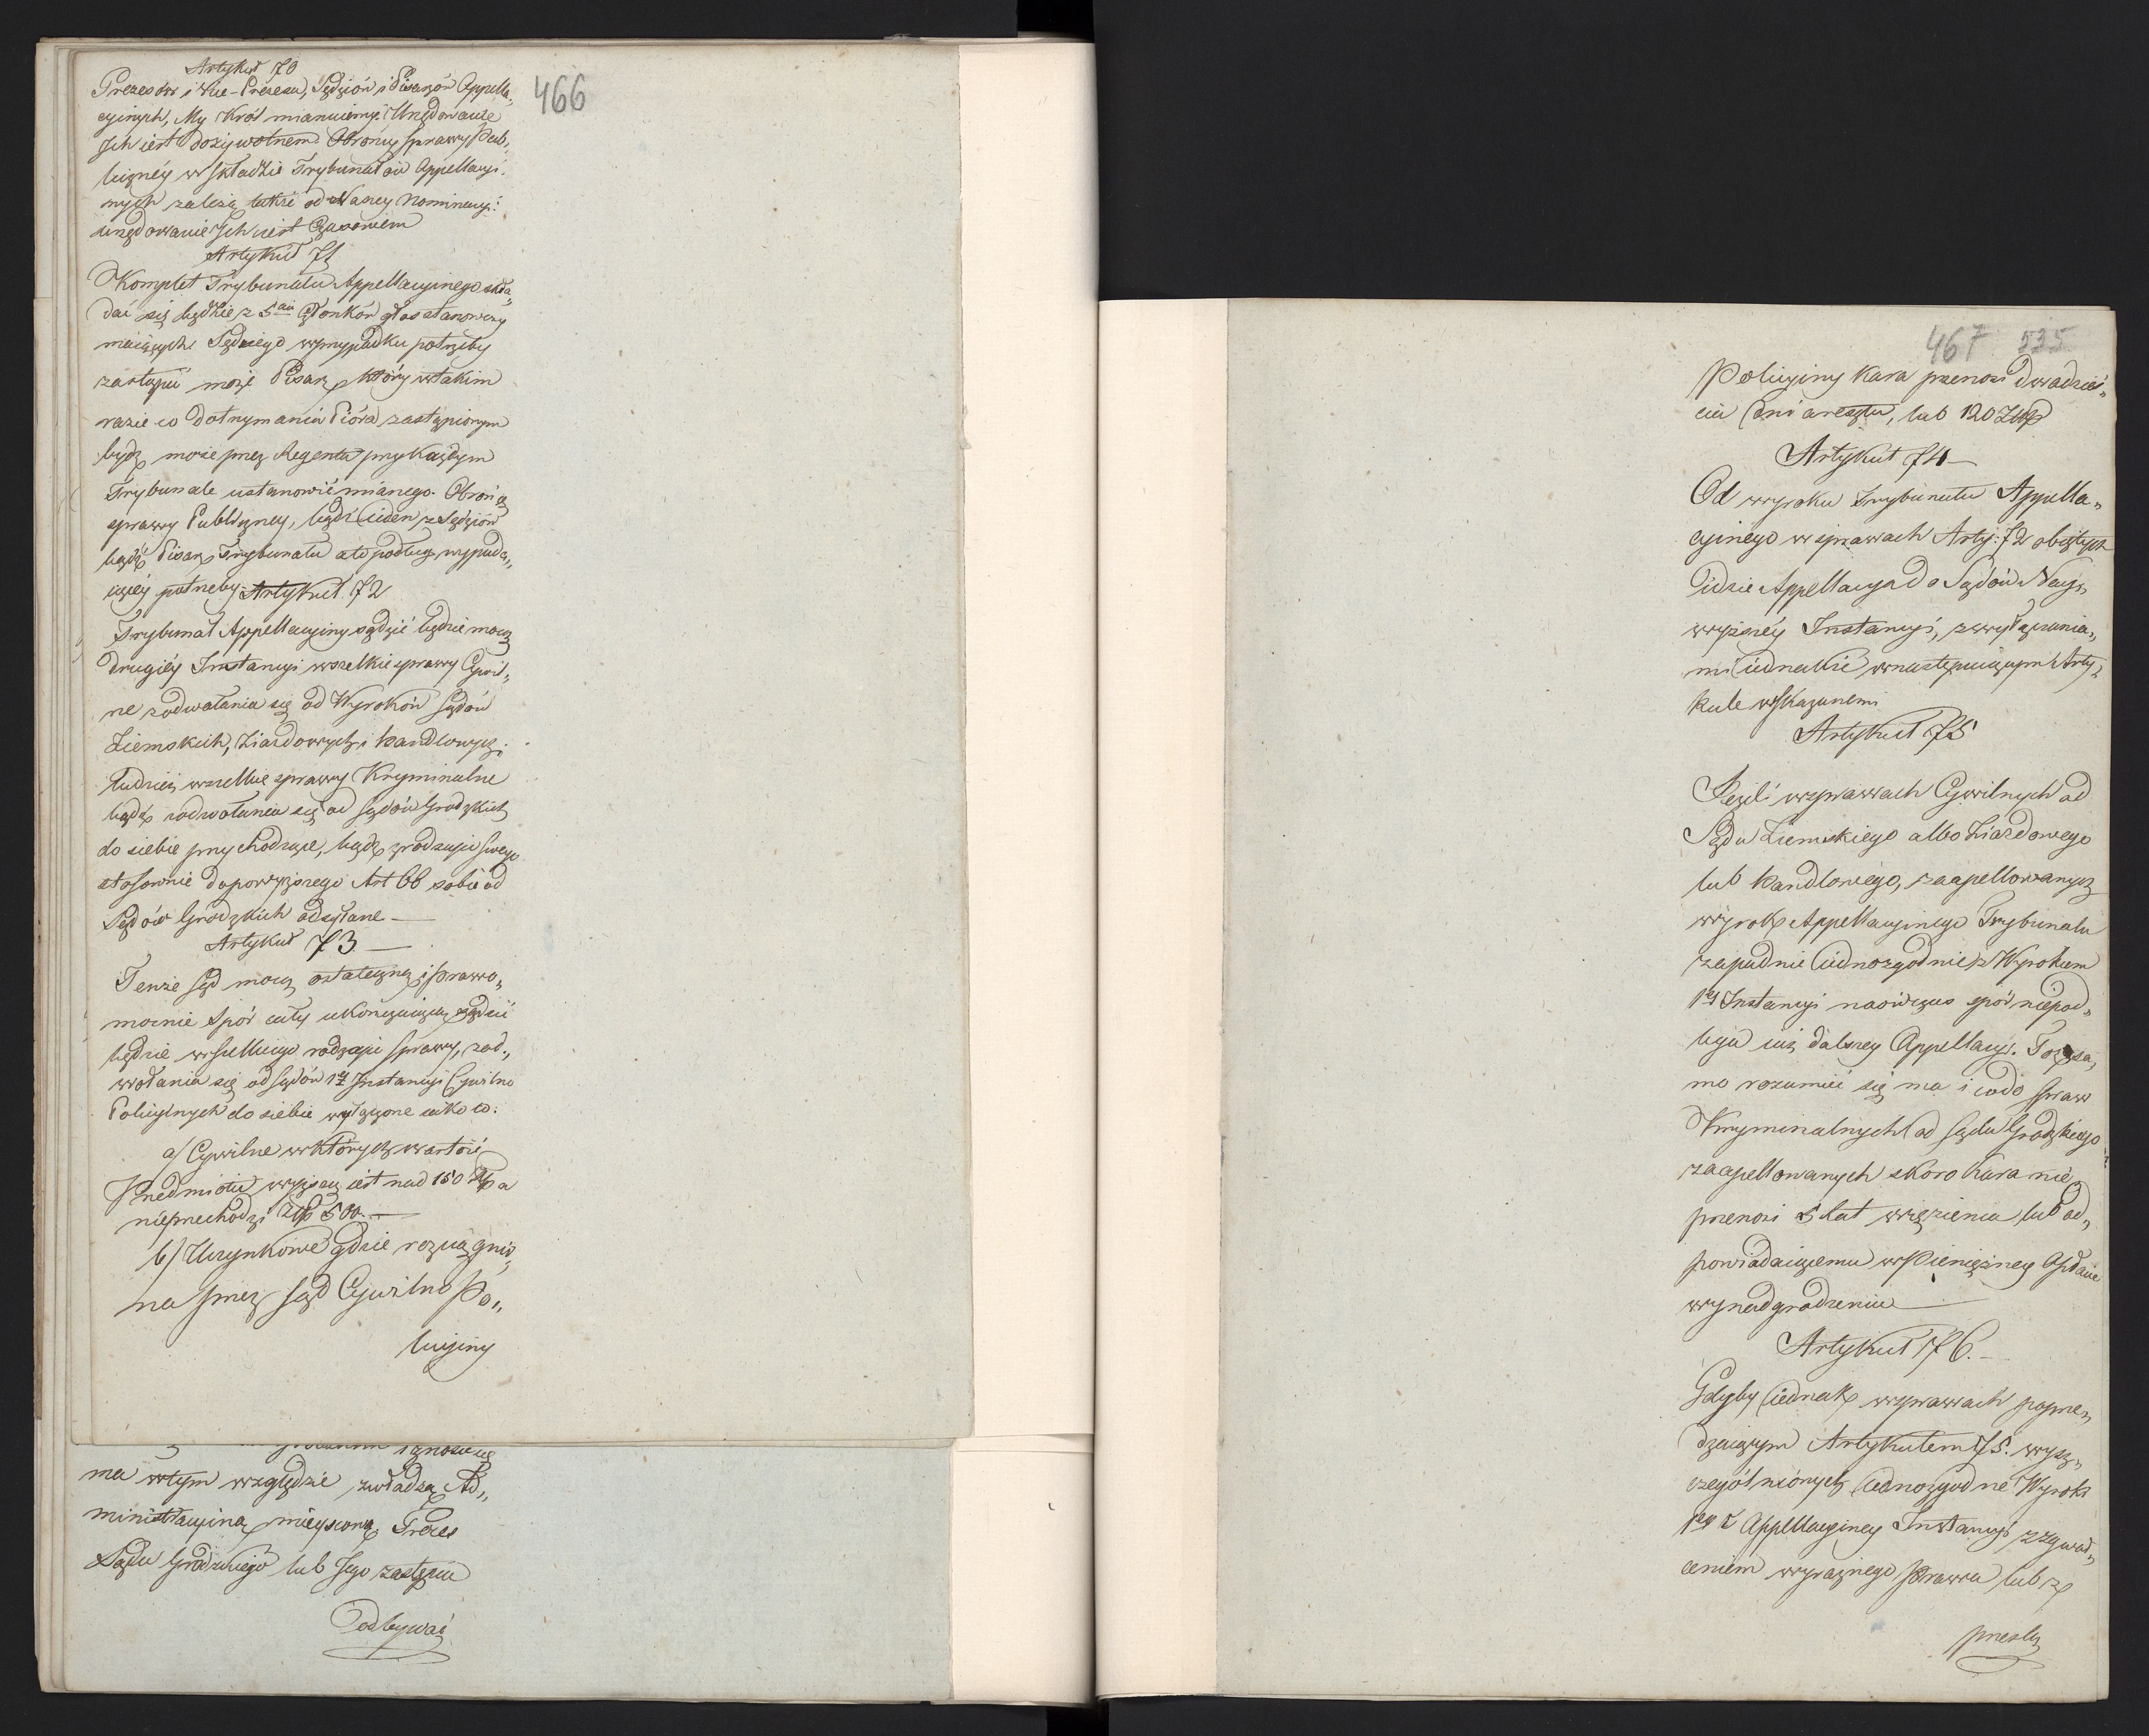 466
Artykuł 70
Prezesów i Vice-Prezesa, Sędziów i Pisarzów Appella„
cyinych, My Król mianuiemy. Urzędowanie
Ich iest dożywotnem. Obrońcy sprawy Pub„
liczney w składzie Trybunałów Appellacyi„
nych zależą także od Naszey Nominacyi:
urzędowanie Ich iest Czasowem
Artykuł 71
Komplet Trybunału Appellacyinego skła„
dać się będzie z 5ciu Członków głos stanowczy
maiących. Sędziego w przypadku potrzeby
zastąpić może Pisarz, który w takim
razie co do trzymania Pióra zastąpionym
bydź może przez Regenta przy każdym
Trybunale ustanowić mianego. Obrońcę
sprawy Publiczney, bądź ieden z Sędziów
bądź Pisarz Trybunału a to podług wypada„
iącéy potrzeby. Artykuł 72
Trybunał Appellacyiny sądzić będzie mocą
drugiéy Instancyi wszelkie sprawy Cywil„
ne z odwołania się od Wyroków Sądów
Ziemskich, Ziazdowych i handlowych;
tudzież wszelkie sprawy Kryminalne
bądź z odwołania się od sądów Grodzkich
do siebie przychodzące, bądź z rodzaju swego
stosownie do powyższego Art 66 sobie od
Sądów Grodzkich odsyłane —
Artykuł 73 —
Tenże Sąd mocą ostateczną i prawo„
mocnie Spór cały ukończaiącą sądzić
będzie wszelkiego rodzaju sprawy, z od„
wołania się od sądów 1éy Instancyi Cywilno
Policyinych do siebie wytoczone iako to:
a/ Cywilne w których wartość
Przedmiotu wyższą iest nad 150 Złp a
nieprzechodzi Złp 500. —
b/ Uczynkowe gdzie rozciągnio„
na przez Sąd Cywilno Po„
licyiny
ma w tym względzie z władzą Ad„
ministracyiną mieyscową Prezes
Sądu Grodzkiego lub Jego zastępca
odbywać
467 535
Policyiny kara przenosi dwadzieś„
cia dni aresztu, lub 120 Złp
Artykuł 74 —
Od wyroku Trybunału Appella„
cyinego w sprawach Arty: 72 obiętych
idzie Appellacya do Sądów Nay„
wyższéy Instancyi, z wyłączenia„
mi iednakże w następuiącym Arty„
kule wskazanemi
Artykuł 75
Jeżeli w sprawach Cywilnych od
Sądu Ziemskiego albo Ziazdowego
lub handlowego, zaapellowanych
wyrok Appellacyinego Trybunału
zapadnie iednozgodnie z Wyrokiem
1éy Instancyi naówczas spór niepod„
lega iuż dalszey Appellacyi. Toż sa„
mo rozumieć się ma i co do spraw
Kryminalnych od Sądu Grodzkiego
zaapellowanych skoro kara nie
przenosi 5 lat więzienia lub od„
powiadaiącemu w Pieniężney Opłacie
wynadgrodzeniu —
Artykuł 76. —
Gdyby iednak w sprawach poprze„
dzaiącym Artykułem 75. wysz„
czególnionych iednozgodne Wyroki
1éy i Appellacyiney Instancyi z zgwał„
ceniem wyraźnego Prawa lub z